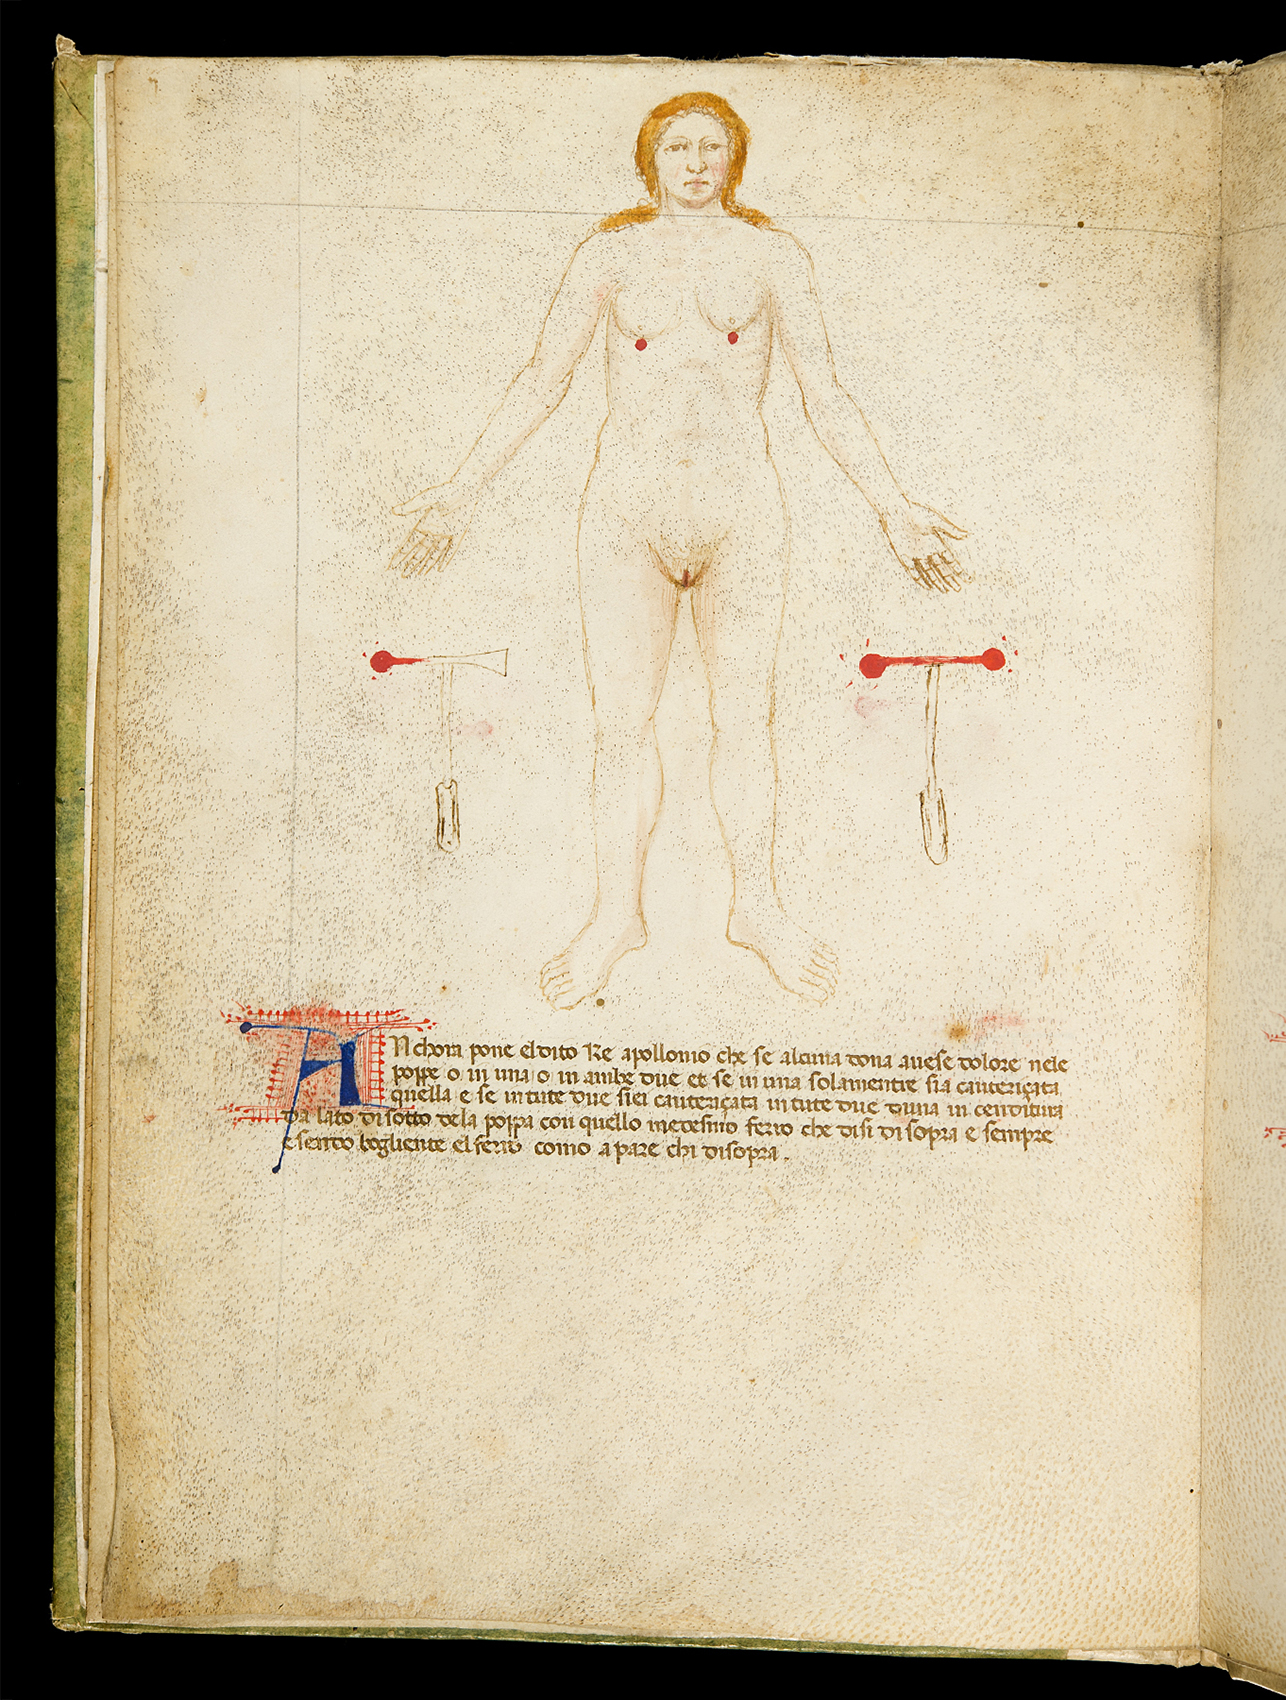 ANchora pone el dito Re apollonio che se alcuna dona avese dolore nele
poppe o in una o in ambe due et se in una solamente sia cauteriçata
quella e se in tute due siei cauteriçata in tute due duna in cenditura
da lato di sotto dela poppa con quello medesmo ferro che disi di sopra e sempre
esendo bogliente el ferro como apare chi disopra.